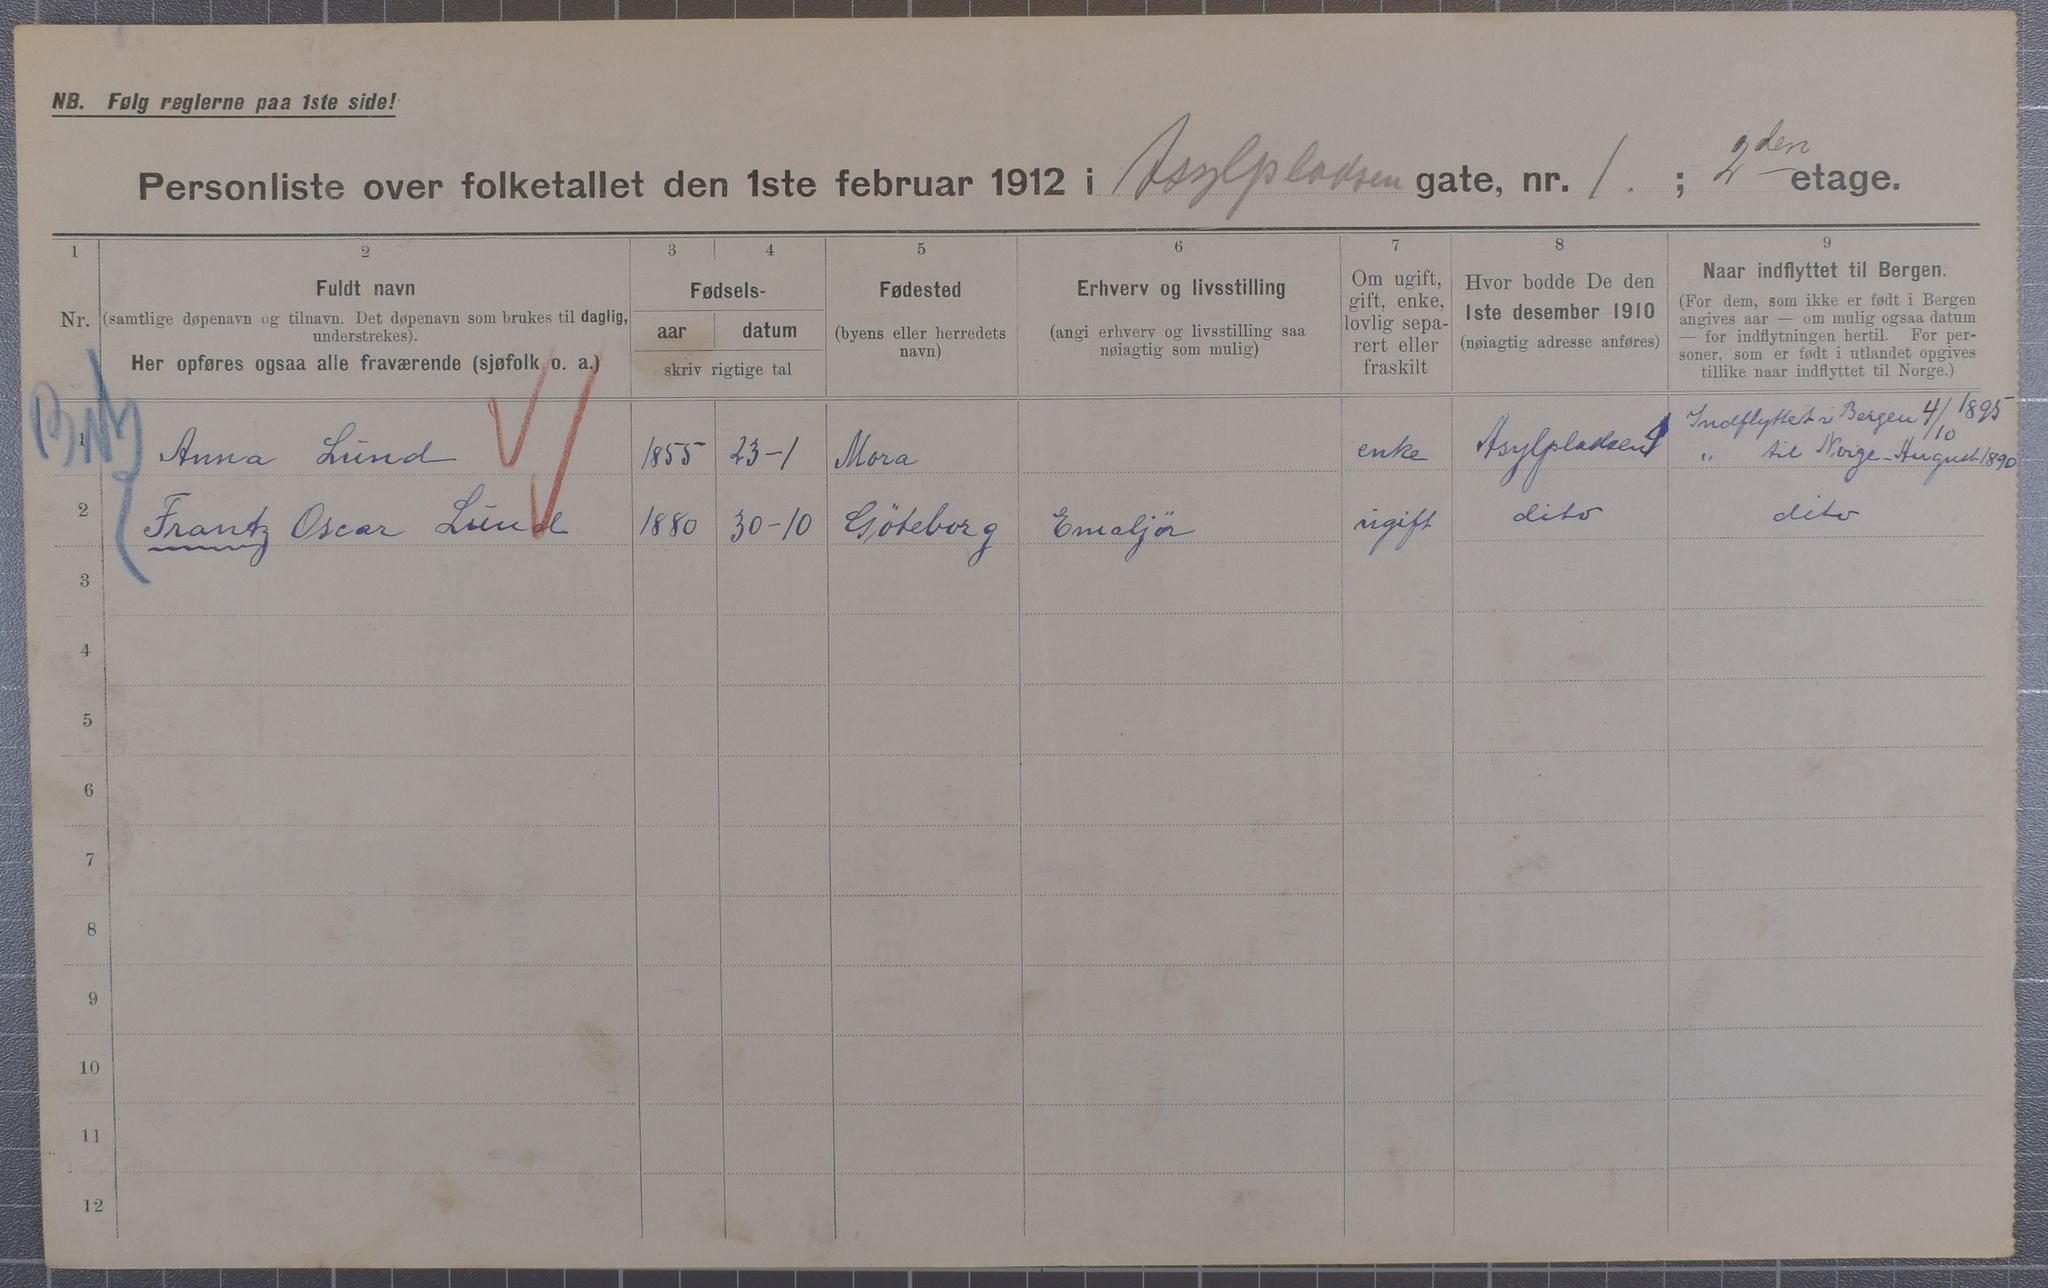 NB. Følg reglerne paa 1ste side!
Personliste over folketallet den 1ste februar 1912 i Asylpladsen gate, nr. 1. ; 2den etage.
1 2 3 4 5 6 7 8 9
Nr.
Fuldt navn
(samtlige døpenavn og tilnavn. Det døpenavn som brukes til daglig,
understrekes).
Her opføres ogsaa alle fraværende (sjøfolk o. a.)
Fødsels-
aar datum
skriv rigtige tal
Fødested
(byens eller herredets
navn)
Erhverv og livsstilling
(angi erhverv og livsstilling saa
nøiagtig som mulig)
Om ugift,
gift, enke,
lovlig sepa-
rert eller
fraskilt
Hvor bodde De den
1ste desember 1910
(nøiagtig adresse anføres)
Naar indflyttet til Bergen.
(For dem, som ikke er født i Bergen
angives aar — om mulig ogsaa datum
— for indflytningen hertil. For per-
soner, som er født i utlandet opgives
tillike naar indflyttet til Norge.)
1 Anna Lund 1855 23-1 Mora enke Asylpladsen 1 Indflyttet i Bergen 4/10 1895
" til Norge - August 1890
2 Frantz Oscar Lund 1880 30-10 Göteborg Emaljör ugift dito dito
3
4
5
6
7
8
9
10
11
12